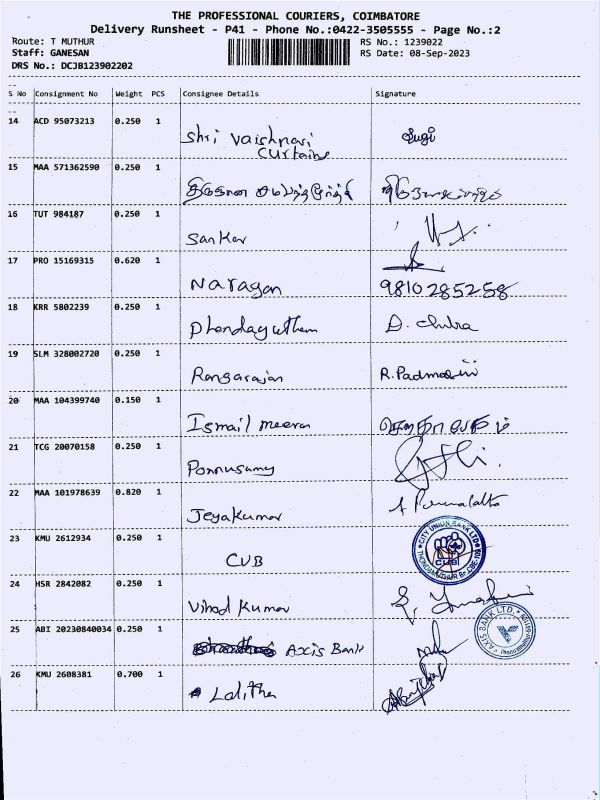 THE PROFESSIONAL COURIERS, COIMBATORE
Delivery Runsheet - P41 - Phone No.:0422-3505555 - Page No.:2
Route: T MUTHUR RS No.: 1239022
Staff: GANESAN RS Date: 08-Sep-2023
DRS No.: DCJB123902202
S No Consignment No Weight PCS Consignee Details Signature
14 ACD 95073213 0.250 1
Shri Vaishnavi
Curtains
15 MAA 571362590 0.250 1
16 TUT 984187 0.250 1
Sankar
17 PRO 15169315 0.620 1
Narayan 9810285258
18 KRR 5802239 0.250 1
Dhandayutham D. Chitra
19 SLM 328002720 0.250 1
Rangarajan R.Padmasini
20 MAA 104399740 0.150 1
Ismail meeran
21 TCG 20070158 0.250 1
Ponnusamy
22 MAA 101978639 0.820 1
Jeyakumar
23 KMU 2612934 0.250 1
CUB
CITY UNION BANK LTD
CUB
24 HSR 2842082 0.250 1
Vinod Kumar
25 ABI 20230840034 0.250 1
Axis Bank
AXIS BANK LTD.
26 KMU 2608381 0.700 1
Lalitha